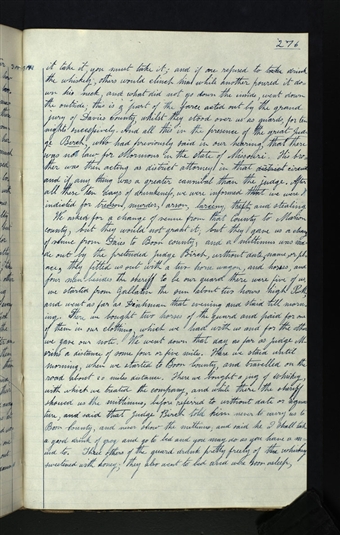 276
it take it, you must take it; and if one refused to take drink
the whiskey, others would clinch him while another poured it do-
wn his neck, and what did not go down the inside went down
the outside, this is a part of the farce acted out by the grand
jury of Davies County, whilst they stood over us as guards for ten
nights successively. And all this in the presence of the great jud-
ge Birch, who had previously said in our hearing that there
was not law for Mormons in the state of Missouri. His bro-
ther was then acting as district attorney in that circuit
and if any thing was a greater cannibal than the judge. After
all these ten days of drunkenness, we were informed that we were
indicted for treason, murder, arson, larceny, theft, and stealing.
We asked for a change of venue from that County to Marion
County, but they would not grant it, but they gave us a chan-
ge of venue from Davis to Boon County, and a mittimus was ma-
de out by the pretended judge Birch, without date, name, or pl-
ace, they fitted us out with a two horse wagon, and horses, and
four men besides the sheriff to be our guard there were five of us
we started from Gallatin the sun about two hours high P.M.
and went as far as Diahman that evening and staid till morn-
ing. Here we bought two horses of the guard and paid for one
of them in our clothing, which we had with us and for the other
we gave our note. We went down that day as far as judge M-
orins a distance of some four or five miles. Here we staid until
morning, when we started to Boon County, and travelled on the
road about 20 miles distance. There we bought a jug of whiskey,
with which we treated the company, and while there the sheriff
showed us the mittimus, before referred to without date or signa-
ture, and said that judge Birch told him never to carry us to
Boon County, and never show the mittimus, and said he I shall take
a good drink of grog and go to bed and you may do as you have a m-
ind to. Three others of the guard drank pretty freely of the whiskey
sweetened with honey; they also went to bed and were soon asleep,